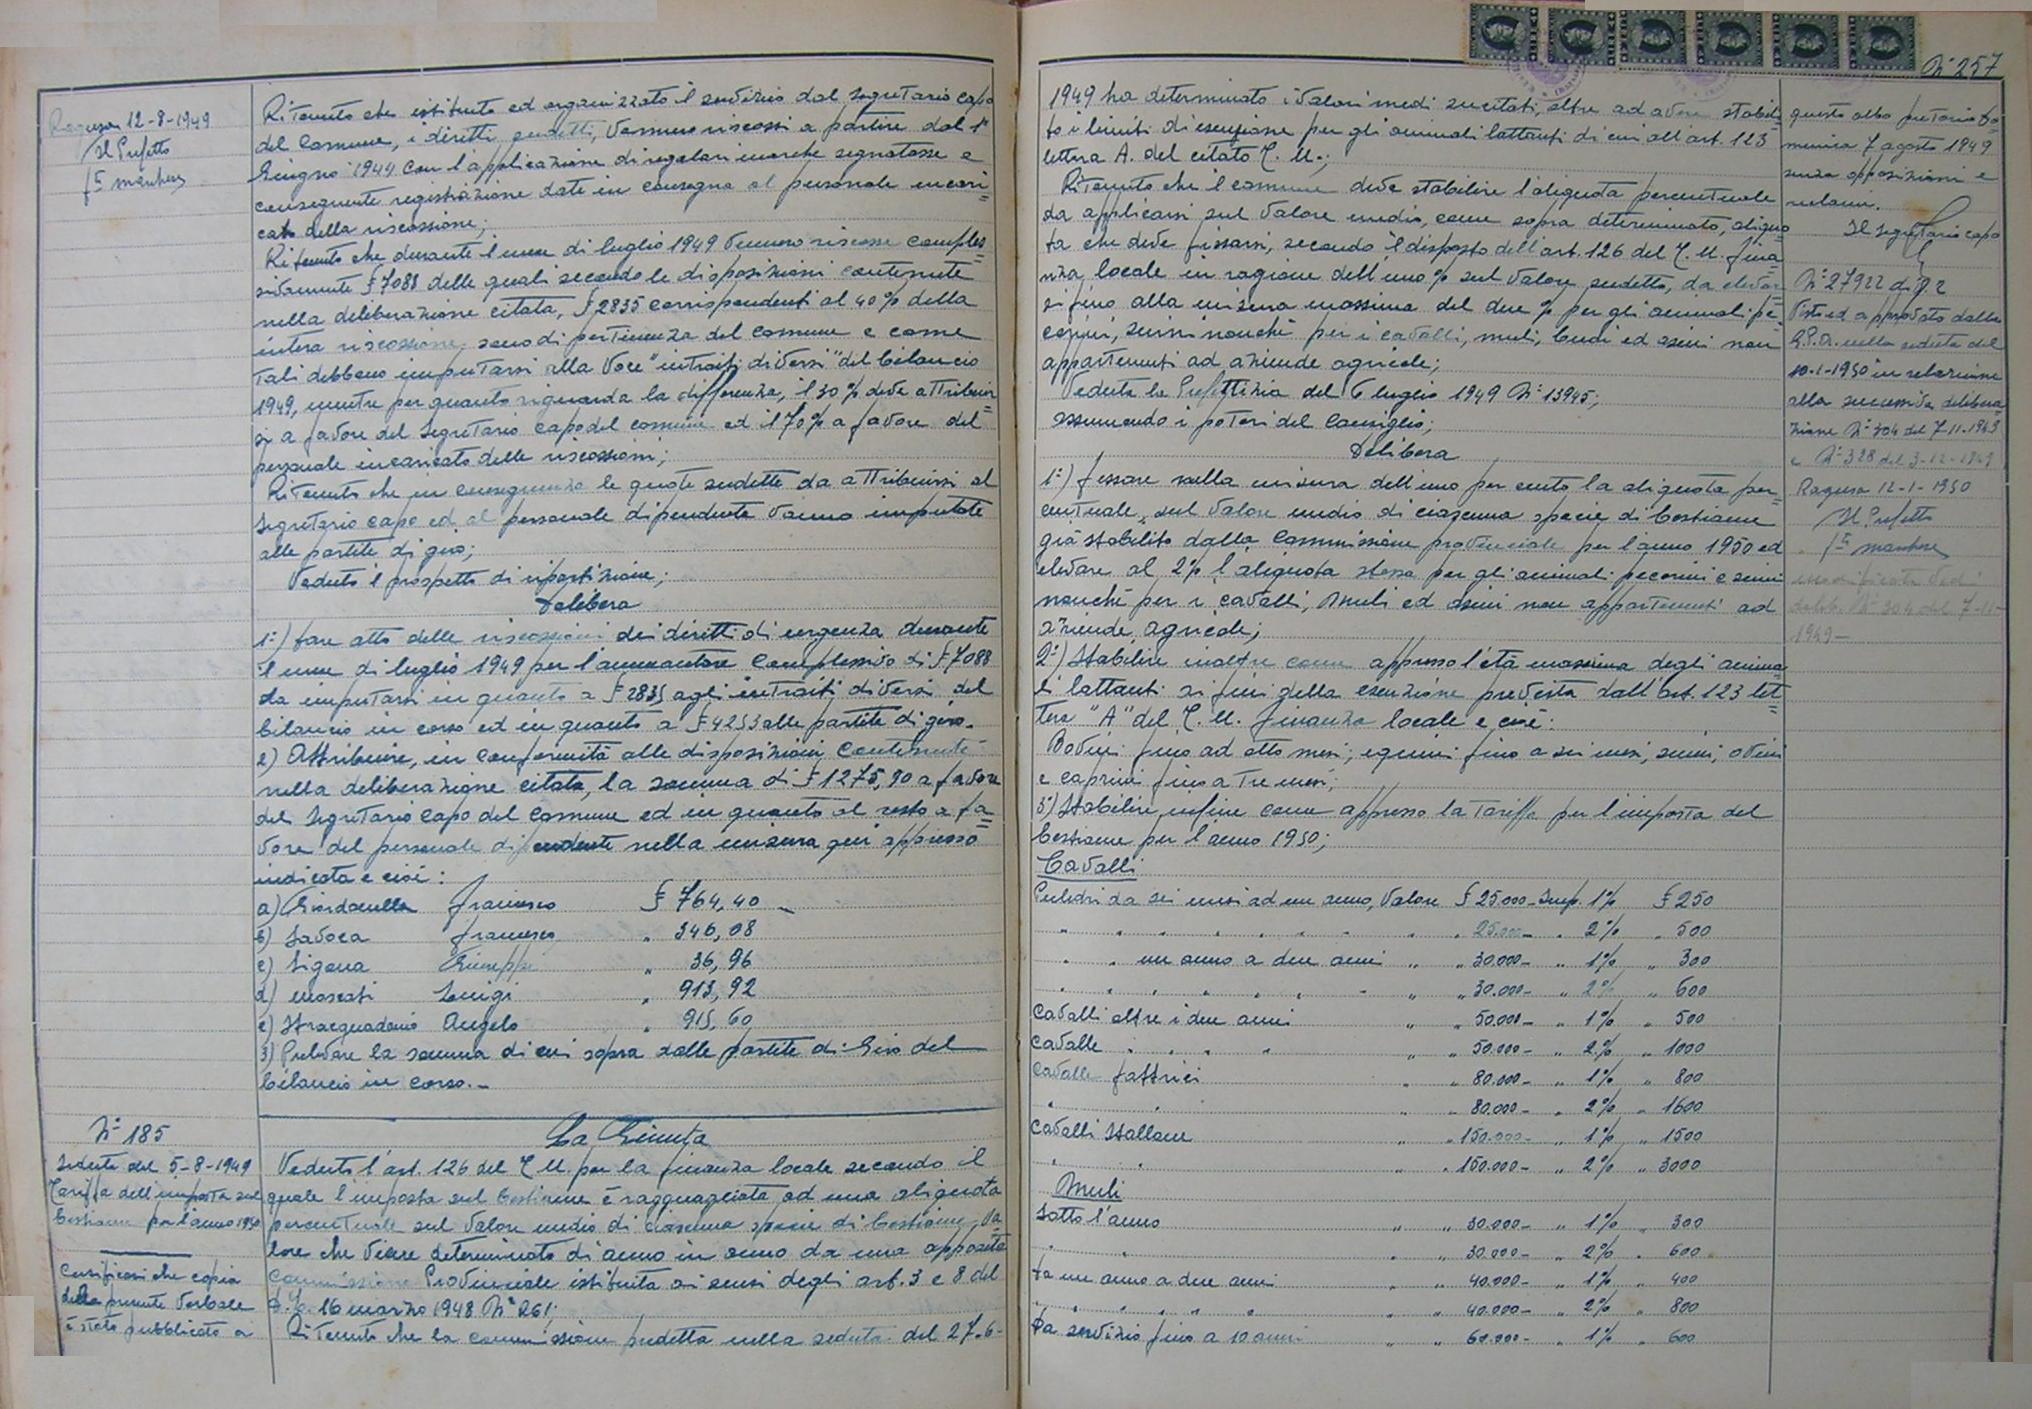 Ragusa 12-8-1949
Il Prefetto
Ritenuto che istituito ed organizzato il servizio dal Segretario capo
del Comune, i diritti predetti, vennero riscossi a partire dal 1°
Giugno 1949 con l'applicazione di regolari marche segnatasse e
conseguente registrazione date in consegna al personale incari
cato della riscossione;
Ritenuto che durante il mese di luglio 1949 vennero riscosse comples=
sivamente £ 7088 delle quali secondo le disposizioni contenute
nella deliberazione citata, £ 2835 corrispondenti al 40% della
intera riscossione, sono di pertinenza del Comune e come
tali debbono imputarsi alla voce "introiti diversi" del bilancio
1949, mentre per quanto riguarda la differenza, il 30% deve attribuir=
si a favore del Segretario capo del comune ed il 70% a favore del
personale incaricato delle riscossioni;
Ritenuto che in conseguenza le quote sudette da attribuirsi al
Segretario capo ed al personale dipendente vanno imputate
alle partite di giro;
Veduto il prospetto di ripartizione;
Delibera
1°) fare atto delle riscossioni dei diritti di urgenza durante
il mese di luglio 1949 per l'ammontare complessivo di £ 7088
da imputarsi in quanto a £ 2835 agli introiti diversi del
bilancio in corso ed in quanto a £ 4253 alle partite di giro.
2) Attribuire, in conformità alle disposizioni contenute
nella deliberazione citata, la somma di £ 1275,90 a favore
del Segretario Capo del Comune ed in quanto al resto a fa=
vore del personale dipendente nella misura qui appresso
indicata e cioè:
a) Giordanella Francesco £ 764,40
b) Savoca Francesco " 346,08
c) Ligena Giuseppe " 36,96
d) Moscati Luigi " 913,92
e) Stracquadanio Angelo " 915,60
3) Prelevare la somma di cui sopra dalle partite di Giro del
bilancio in corso.-
N° 185
Seduta del 5-8-1949
Tariffa dell'imposta sul
bestiame per l'anno 1950
Certificasi che copia
della presente verbale
è stato pubblicato a
La Giunta
Veduto l'art. 126 del T.U. per la finanza locale secondo il
quale l'imposta sul bestiame è ragguagliata ad una aliquota
percentuale sul valore medio di ciascuna specie di bestiame, va=
lore che viene determinato di anno in anno da una apposita
Commissione Provinciale istituita ai sensi degli art. 3 e 8 del
D.L. 16 marzo 1948 N° 261;
Ritenuto che la commissione predetta nella seduta del 27-6-
N° 257
1949 ha determinato i valori medi sucitati, oltre ad avere stabili
to i limiti di esenzione per gli animali lattanti di cui all'art. 123
lettera A. del citato T.U.;
Ritenuto che il comune deve stabilire l'aliquota percentuale
da applicarsi sul valore medio, come sopra determinato, aliquo=
ta che deve fissarsi, secondo il disposto dell'art. 126 del T.U. fina
nza locale in ragione dell'uno % sul valore sudetto, da elevar
si fino alla misura massima del due % per gli animali pe=
corini, suini nonchè per i cavalli, muli, bardi ed asini non
appartenenti ad aziende agricole;
Veduta la Prefettizia del 6 luglio 1949 N° 13945;
assumendo i poteri del Consiglio;
Delibera
1°) fissare nella misura dell'uno per cento la aliquota per=
centuale, sul valore medio di ciascuna specie di bestiame
già stabilito dalla Commissione provinciale per l'anno 1950 ed
elevare al 2% l'aliquota stessa per gli animali pecorini e suini
nonchè per i cavalli, muli ed asini non appartenenti ad
aziende agricole;
2°) Stabilire inoltre come appresso l'età massima degli anima
li lattanti ai fini della esenzione prevista dall'art. 123 let=
tera "A" del T.U. finanza locale e cioè:
Bovini fino ad otto mesi; equini fino a sei mesi, suini, ovini
e caprini fino a tre mesi;
3°) Stabilire infine come appresso la tariffa per l'imposta del
bestiame per l'anno 1950;
Cavalli
Puledri da sei mesi ad un anno, Valore £ 25.000- Imp. 1% £ 250
" " " " " " " " " 25.000- " 2% " 500
" " un anno a due anni " " 30.000- " 1% " 300
" " " " " " " " 30.000- " 2% " 600
Cavalli oltre i due anni " " 50.000- " 1% " 500
Cavalle " " " " " " 50.000- " 2% " 1000
Cavalle fattrici " " 80.000- " 1% " 800
" " " " 80.000- " 2% " 1600
Cavalli Stallone " " 150.000- " 1% " 1500
" " " " 150.000- " 2% " 3000
Muli
Sotto l'anno " " 30.000- " 1% " 300
" " " " 30.000- " 2% " 600
Da un anno a due anni " " 40.000- " 1% " 400
" " " " " " " 40.000- " 2% " 800
Da servizio fino a 10 anni " " 60.000- " 1% " 600
questo albo pretorio do=
menica 7 agosto 1949
senza opposizioni e
reclami.
Il Segretario capo
N° 27922 di
Visto ed approvato dalla
G.P.A. nella seduta del
10-1-1950 in relazione
alla successiva delibera=
zione N° 304 del 7-11-1949
e N° 328 del 3-12-1949
Ragusa 12-1-1950
Il Prefetto
modificata vedi
delib. N° 304 del 7-11-
1949-